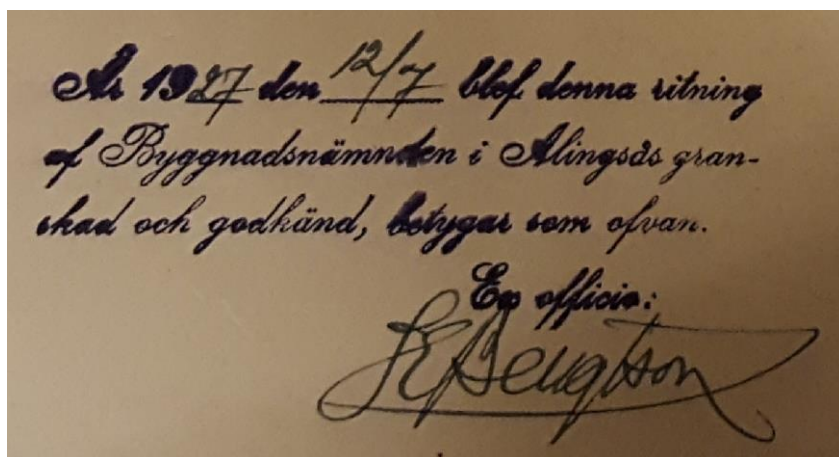 År 1927 den 12/7 blef denna ritning
af Byggnadsnämnden i Alingsås gran-
skad och godkänd, betygar som ofvan.
Ex officio:
Bengtson